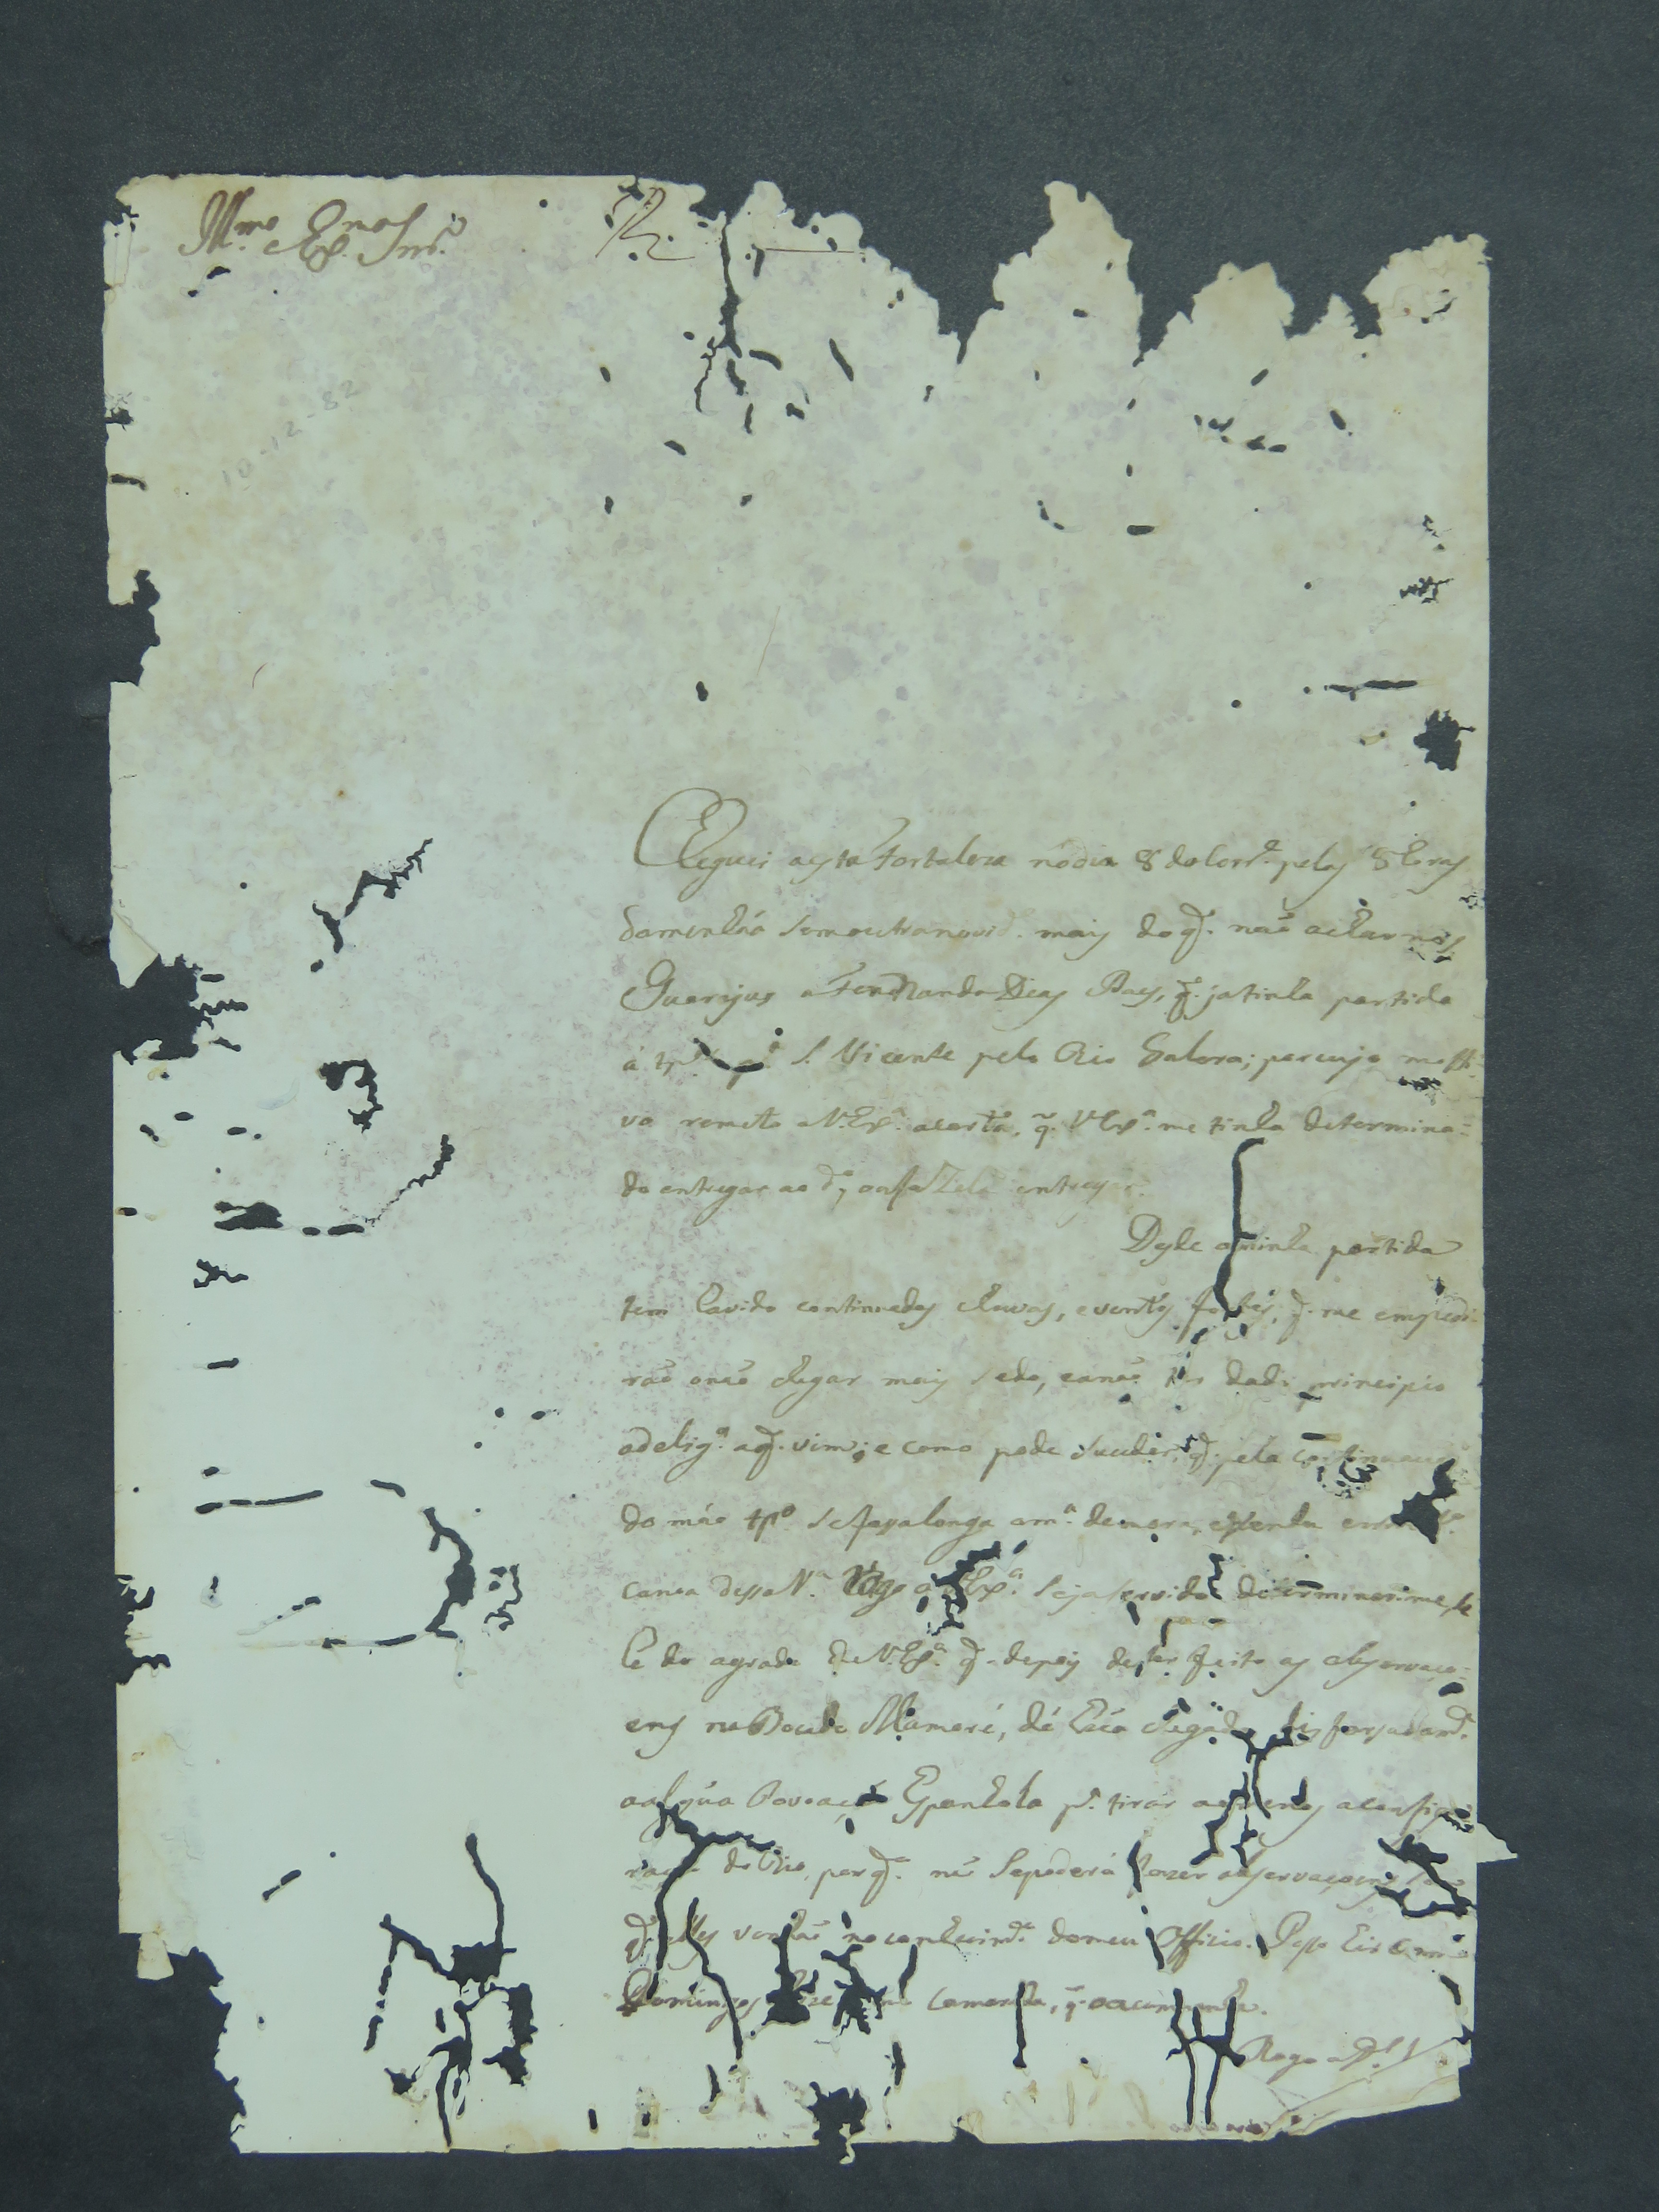 Ill.mo e Ex.mo Snr.
R.
10-12-82
Cheguei a esta Fortaleza no dia 8 do Corr.e pelas 8 horas
da menhãa sem outra novid.e mais do q. não achar nos
Guarijus a Ferdnando Dias Paes, q. ja tinha partido
á tp.o p.a S. Vicente pelo Rio Galera; por cujo moti-
vo remeto a V. Ex.a a carta, q. V. Ex.a me tinha determina-
do entregar ao d.o, entregar.
Desde a minha partida
tem havido continuadas chuvas, e ventos fortes, q. me empedi-
rão o não chegar mais sedo, e a não ter dado principio
a delig.a a q. vim; e como pode suceder, q. pela continuação
do máo tp.o se faça longa a m.a demora, e venha
canoa dessa V.a Rogo a V. Ex.a seja servido determinarme, se
he do agrado de V. Ex.a q. depois de ter feito as observaço-
ens na Boca do Mamoré, dê hũa chegada
a algũa Povoação Espanhola p.a tirar
do Rio, porq. não se poderá fazer observaçoens
q. elles venhão no conhecim.to do meu Officio.
Domingos camarada, q. o acompanha.
Rogo a D.s